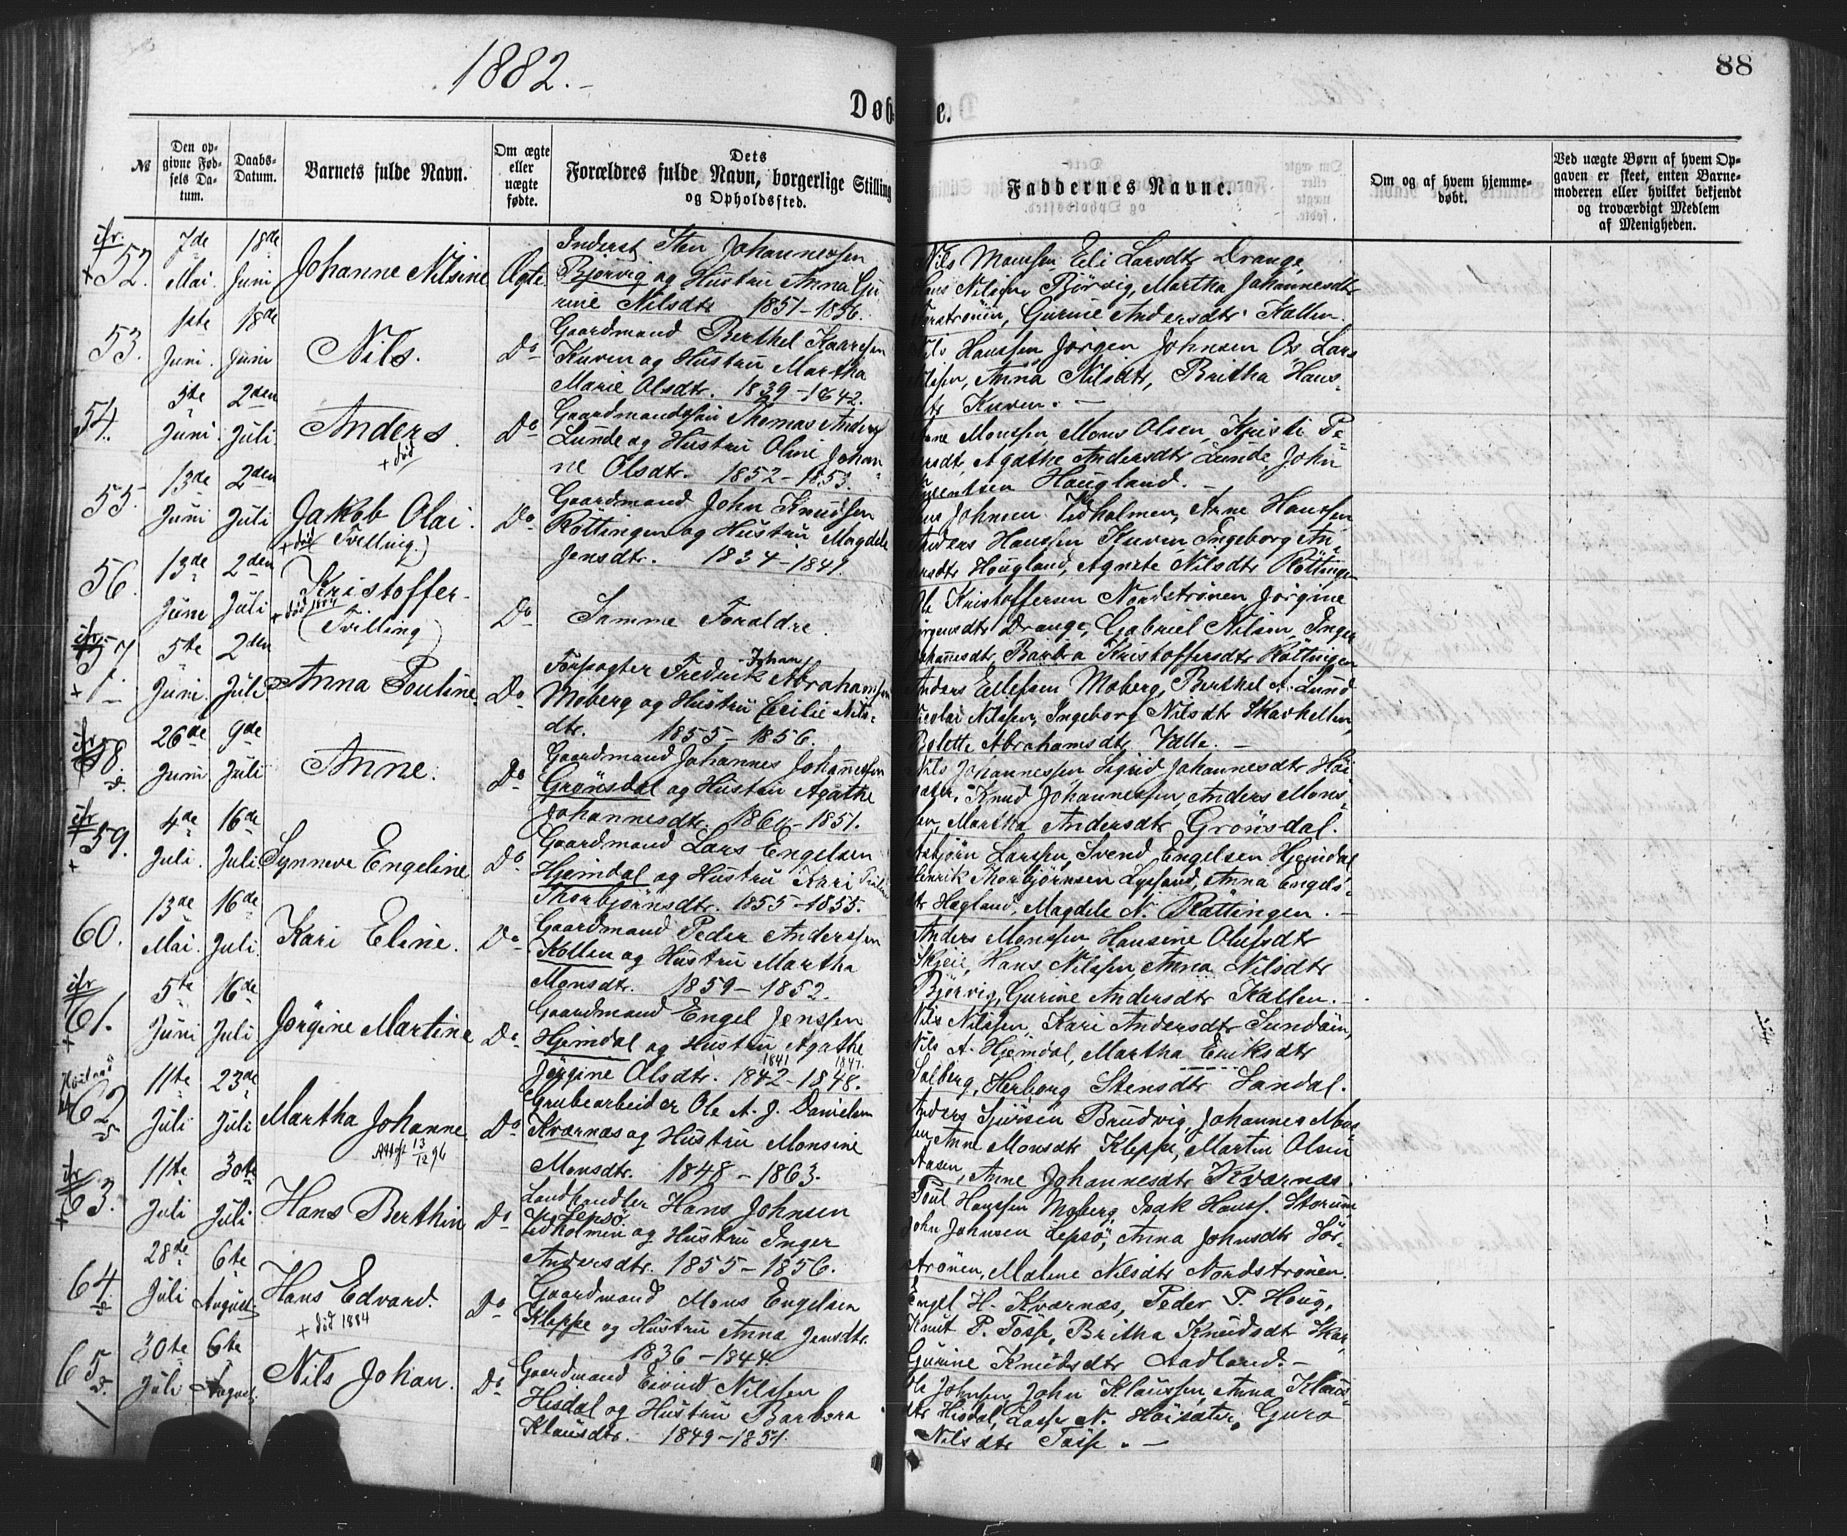 1882.
88
Døb
e.
№
Den opgivne Fødsels Datum.
Daabs-Datum.
Barnets fulde Navn.
Om ægte eller uægte fødte.
Dets Forældres fulde Navn, borgerlige Stilling og Opholdssted.
Faddernes Navne.
Om og af hvem hjemmedøbt.
Ved uægte Børn af hvem Opgaven er skeet, enten Barnemoderen eller hvilket bekjendt og troværdigt Medlem af Menigheden.
52. 7de Mai. 18de Juni Johanne Nilsine Ægte
Inderst Sten Johannessen
Bjørvig og Hustru Anna Gu
rine Nilsdtr 1851-1856.
Nils Monssen Eli Larsdtr Drange,
Hans Nilssen Børvig, Martha Johannesdtr
Gurine Andersdtr Kallen.
53. 1ste Juni. 18de Juni Nils. Do
Gaardmand Berthel Kaaresen
Kuven og Hustru Martha
Marie Olsdtr. 1839-1842.
Nils Hanssen Jørgen Johnsen Os Lars
Nilssen, Anna Nilsdtr, Britha Hans-
dtr Kuven. -
54. 3te Juni. 2den Juli Anders. + død Do
Gaardmandssøn Thomas Anders
Lunde og Hustru Oline Johan
ne Olsdtr. 1852-1853.
Monssen, Mons Olsen, Kristi Pe-
dersdt, Agathe Andersdtr Lunde John
Haugland. -
55. 13de Juni 2den Juli Jakob Olai. + død (Tvilling.) Do
Gaardmand John Knudsen
Røttingen og Hustru Magdele
Jensdtr. 1834-1841.
Johnsen Vedholmen, Arne Hanssen
Anders Hanssen Kuven, Ingeborg An-
dersdtr Hougland, Agnete Nilsdtr Røttingen
56. 13de Juni 2den Juli Kristoffer - + død 1884 (Tvilling) Do
Samme Foraldre.
Ole Kristoffersen Nordstrønen Jørgine
Jørgensdtr Drange, Gabriel Nilsen, Inger
Johannesdt, Barbra Kristoffersdtr Røttingen
57. 5te Juni. 2den Juli Anna Pouline. Do
Forpagter Fredrik Johan Abrahamsen
Moberg og Hustru Cecilie Nils-
dtr. 1855-1856.
Anders Ellefsen Moberg, Berthel A. Lund
Nicolai Nilssen, Ingeborg Nilsdtr Skarhellen,
Bolette Abrahamsdtr Valle. -
58. 26de Juni 9de Juli Anne. Do
Gaardmand Johannes Johannessen
Grønsdal og Hustru Agathe
Johannesdtr. -1851.
Nils Johannessen Sigrid Johannesdtr Høi
sæter, Knud Johannessen, Anders Mons-
sen, Martha Andersdtr Grønsdal.
59. 4de Juli. 16de Juli Synneve Engeline Do
Gaardmand Lars Engelsen
Hjemdal og Hustru Kari
Thorbjørnsdtr. 1855-1855.
Asbjørn Larssen, Svend Engelsen Hjemdal
Henrik Thorbjørnsen Lyssand, Anna Engels-
dtr Hegland, Magdele N. Røttingen. -
60. 13de Mai. 16de Juli. Kari Eline. Do
Gaardmand Peder Anderssen
Kollen og Hustru Martha
Monsdtr. 1859-1852.
Anders Monssen Hansine Olufsdtr
Skjeie, Hans Nilssen Anna Nilsdtr
Bjørvig, Gurine Andersdtr Kallen. -
61. 5te Juni 16de Juli Jørgine Martine Do
Gaardmand Engel Jenssen
Hjemdal og Hustru Agathe
1841 1847.
Jørgine Olsdtr. 1842-1848.
Nils Nilssen, Kari Andersdtr Sundøin,
Nils A. Hjemdal, Martha Eriksdtr
Solberg, Herborg Stensdtr Sandal.
62 11te Juli 23de Juli Martha Johanne. Attest 13/12 96 Do
Grubearbeider Ole A. J. Danielsen
Kværnæs og Hustru Monsine
Monsdtr. 1848-1863.
Anders Sjursen Brudvig, Johannes Mons-
sen Anne Monsdtr Kleppe, Martin Olsen
Aasen, Anne Johannesdtr Kværnæs.
63. 11te Juli 30te Juli Hans Berthin Do
Landhandler Hans Johnsen
Lepsø.
Vedholmen og Hustru Inger
Andersdtr. 1855-1856.
Poul Hanssen Moberg, Isak Hanss. Storum
John Johnsen Lepsø, Anna Johnsdtr Sør-
strønen, Malene Nilsdtr Nordstrønen.
64. 28de Juli 6te August Hans Edvard. + død 1884 Do
Gaardmand Mons Engelsen
Kleppe og Hustru Anna Jensdtr.
1836-1844.
Engel H. Kværnæs, Peder P. Houg,
Knut P. Tosse, Britha Knudsdt Skar,
Gurine Knudsdtr Aadland. -
65. 30te Juli 6te August. Nils Johan. Do
Gaardmand Eivind Nilssen
Hisdal og Hustru Barbera
Klausdtr. 1849-1851.
Ole Johnsen, John Klaussen, Anna Klaus-
dtr Hisdal, Lasse N. Høisæter, Guro
Nilsdtr Tosse. -